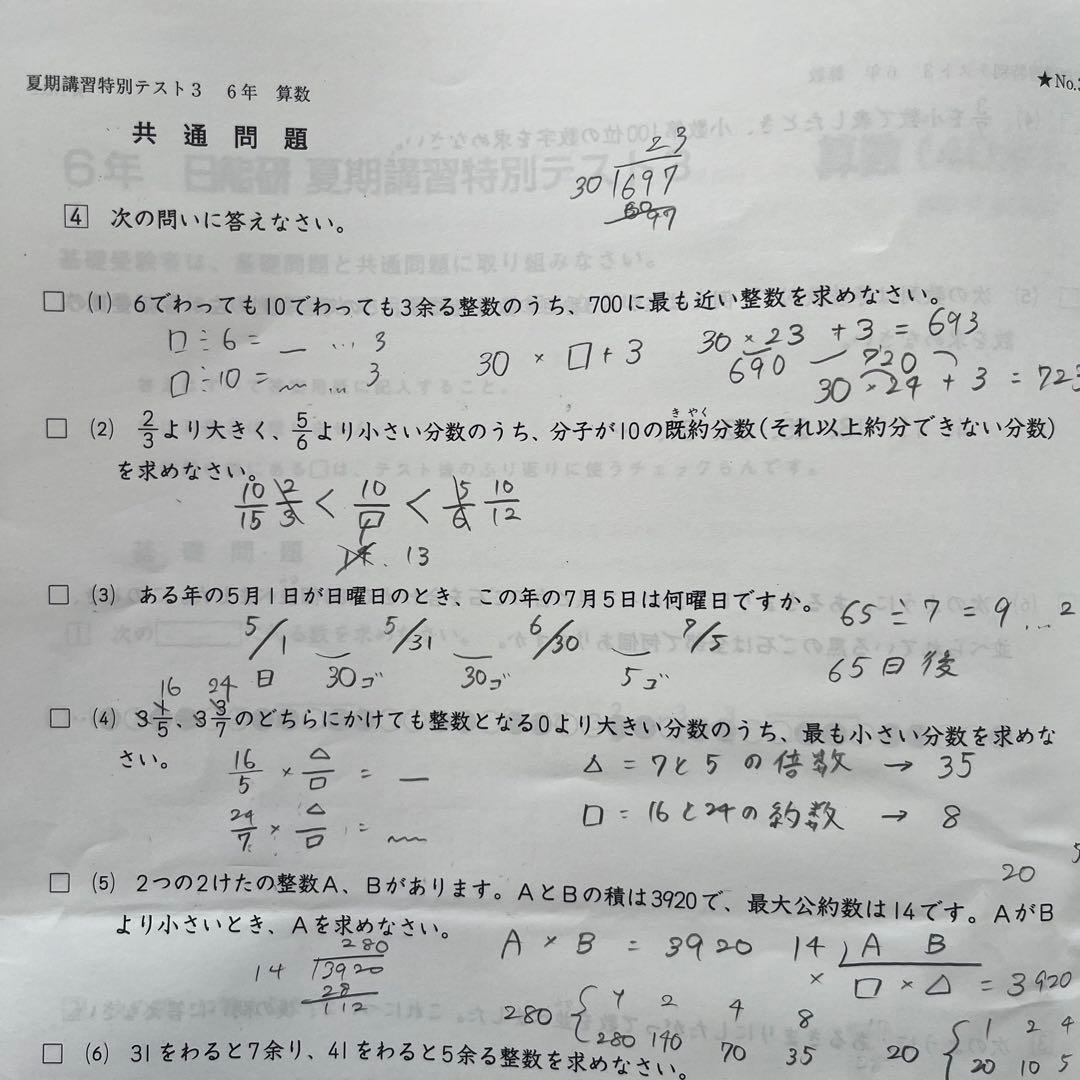 夏期講習特別テスト3 6年 算数
★No.
共通問題
23
30 1697
60
97
4 次の問いに答えなさい。
□ (1) 6でわっても10でわっても3余る整数のうち、700に最も近い整数を求めなさい。
□÷6=_…3
30×□+3
30×23+3=693
690 720
□÷10=〜…3
30×24+3=723
□ (2) 2/3より大きく、5/6より小さい分数のうち、分子が10の既約分数(それ以上約分できない分数)
きやく
を求めなさい。
10/15 2/3 < 10/□ < 5/6 10/12
14. 13
□ (3) ある年の5月1日が日曜日のとき、この年の7月5日は何曜日ですか。
5/1 5/31 6/30 7/5
65÷7=9…2
日 30コ 30コ 5コ
65日後
16 24
□ (4) 3 1/5、3 3/7のどちらにかけても整数となる0より大きい分数のうち、最も小さい分数を求めな
さい。
16/5 × △/□ = _
△=7と5の倍数→35
24/7 × △/□ = 〜
□=16と24の約数→8
20
□ (5) 2つの2けたの整数A、Bがあります。AとBの積は3920で、最大公約数は14です。AがB
より小さいとき、Aを求めなさい。
A×B=3920
14 A B
280
14 3920
28
112
× □×△=3920
280 { 1 2 4 8
280 140 70 35
20 { 1 2 4
20 10 5
□ (6) 31をわると7余り、41をわると5余る整数を求めなさい。